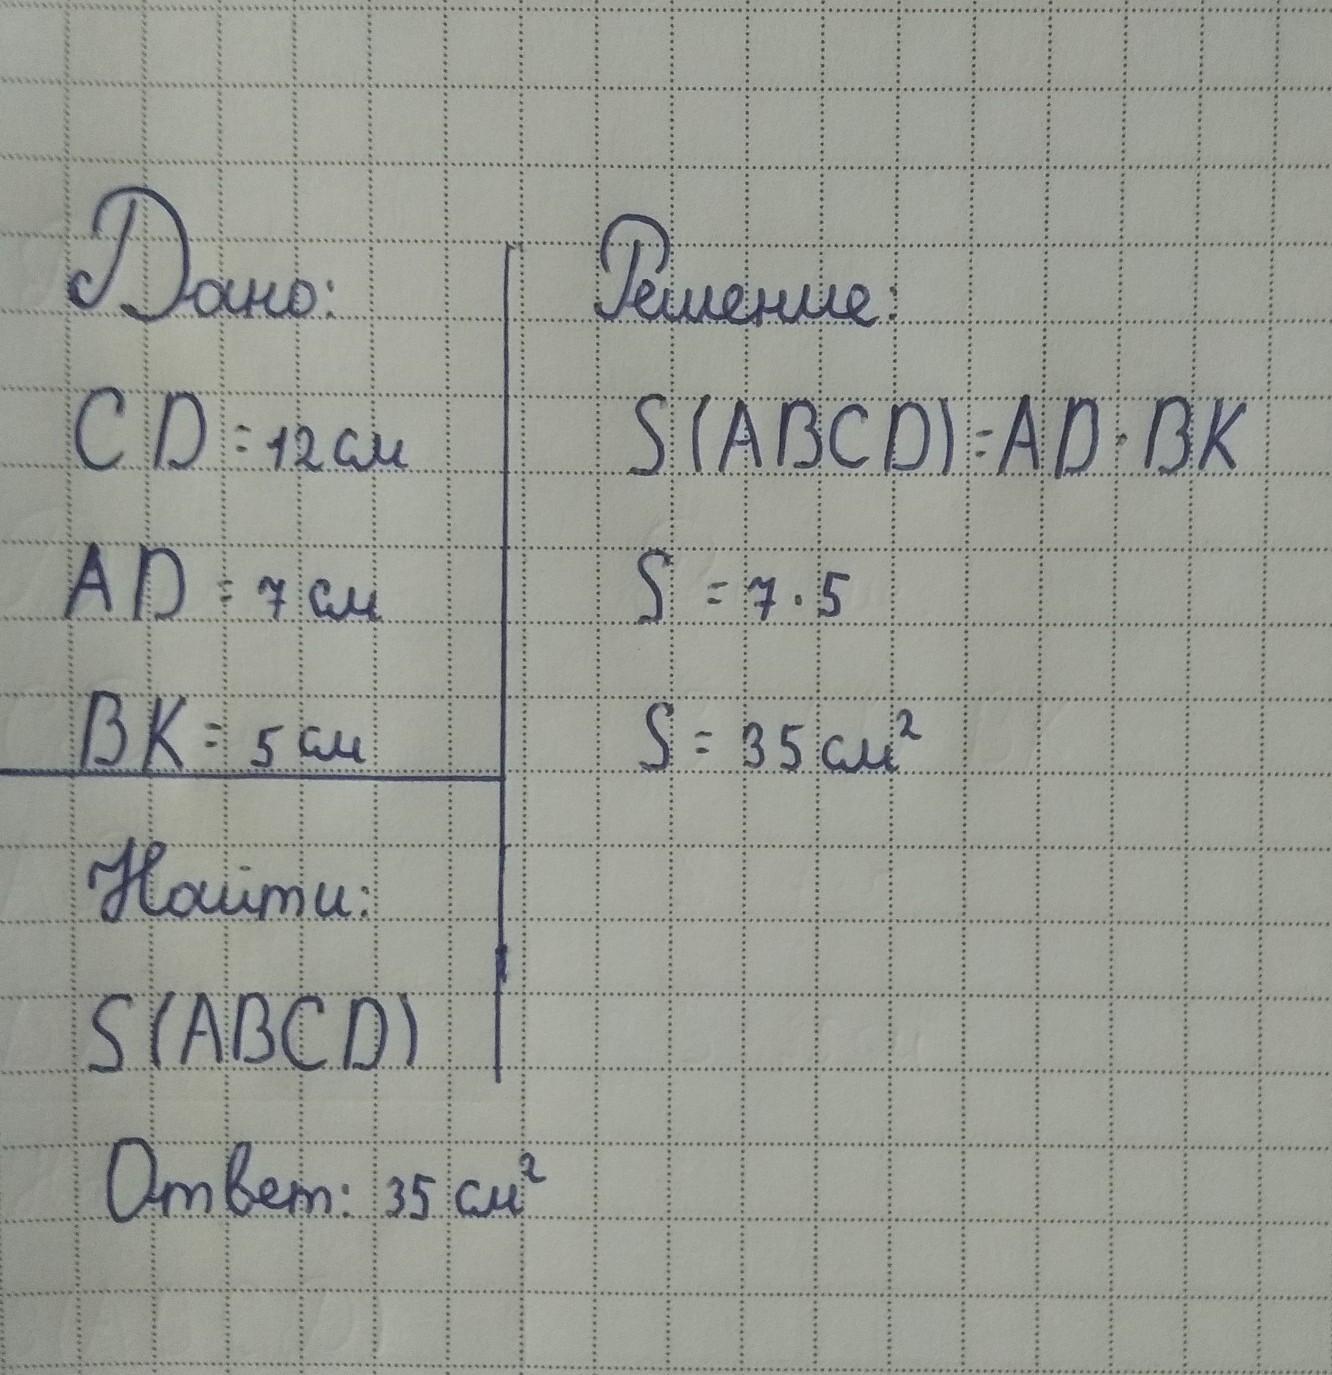 Дано:
CD = 12 см
AD = 7 см
BK = 5 см
Найти:
S(ABCD)
Решение:
S(ABCD) = AD · BK
S = 7 · 5
S = 35 см²
Ответ: 35 см²